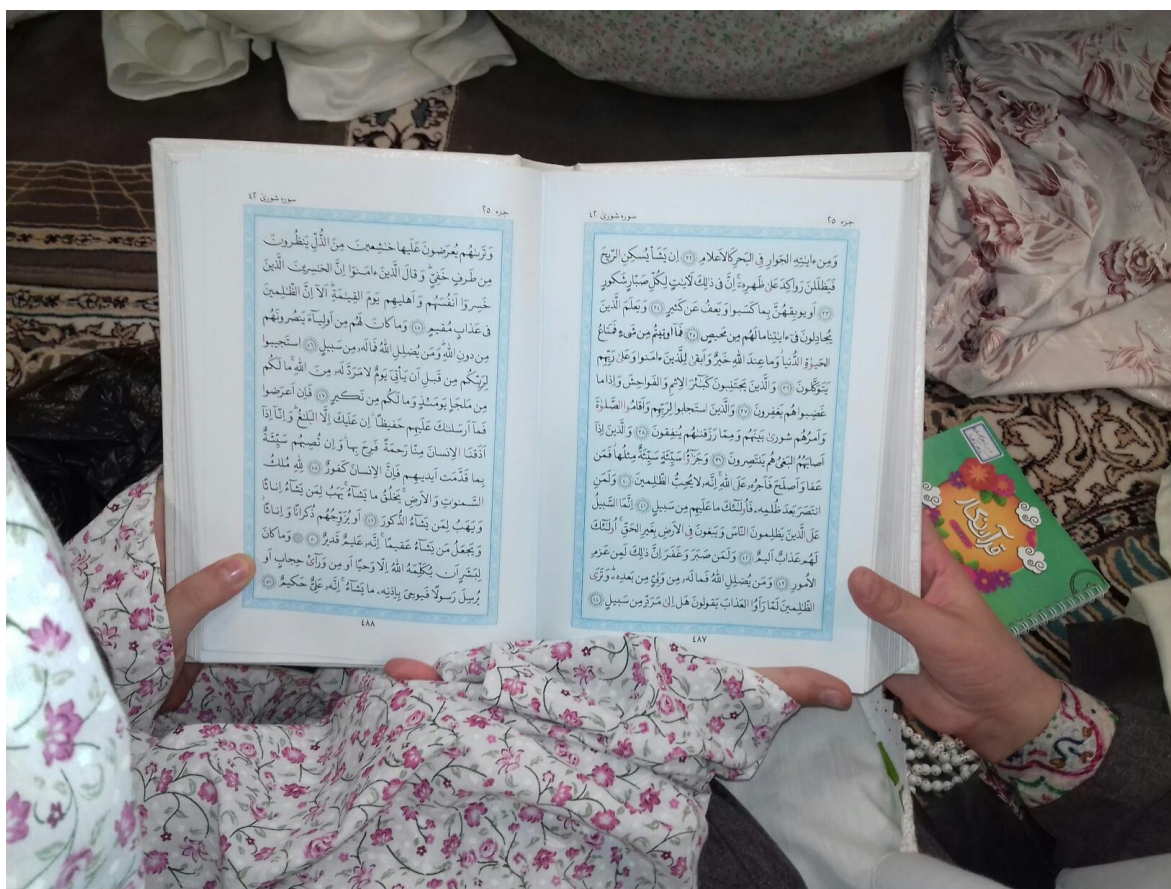 جزء ٢٥
سوره شوریٰ ٤٢
وَمِن ءايٰتِهِ الجَوارِ فِى البَحرِ كَالاَعلامِ ﴿٣٢﴾ اِن يَشَأ يُسكِنِ الرّيحَ
فَيَظلَلنَ رَواكِدَ عَلىٰ ظَهرِهِ اِنَّ فى ذٰلِكَ لَاٰيٰتٍ لِكُلِّ صَبّارٍ شَكورٍ
﴿٣٣﴾ اَو يوبِقهُنَّ بِما كَسَبوا وَيَعفُ عَن كَثيرٍ ﴿٣٤﴾ وَيَعلَمَ الَّذينَ
يُجادِلونَ فى ءايٰتِنا ما لَهُم مِن مَحيصٍ ﴿٣٥﴾ فَما اوتيتُم مِن شَىءٍ فَمَتاعُ
الحَيوٰةِ الدُّنيا وَما عِندَ اللهِ خَيرٌ وَاَبقىٰ لِلَّذينَ ءامَنوا وَعَلىٰ رَبِّهِم
يَتَوَكَّلونَ ﴿٣٦﴾ وَالَّذينَ يَجتَنِبونَ كَبٰئِرَ الاِثمِ وَالفَواحِشَ وَاِذا ما
غَضِبوا هُم يَغفِرونَ ﴿٣٧﴾ وَالَّذينَ استَجابوا لِرَبِّهِم وَاَقامُوا الصَّلوٰةَ
وَاَمرُهُم شورىٰ بَينَهُم وَمِمّا رَزَقنٰهُم يُنفِقونَ ﴿٣٨﴾ وَالَّذينَ اِذا
اَصابَهُمُ البَغىُ هُم يَنتَصِرونَ ﴿٣٩﴾ وَجَزٰؤُا سَيِّئَةٍ سَيِّئَةٌ مِثلُها فَمَن
عَفا وَاَصلَحَ فَاَجرُهُ عَلَى اللهِ اِنَّهُ لا يُحِبُّ الظّٰلِمينَ ﴿٤٠﴾ وَلَمَنِ
انتَصَرَ بَعدَ ظُلمِهِ فَاُولٰئِكَ ما عَلَيهِم مِن سَبيلٍ ﴿٤١﴾ اِنَّمَا السَّبيلُ
عَلَى الَّذينَ يَظلِمونَ النّاسَ وَيَبغونَ فِى الاَرضِ بِغَيرِ الحَقِّ اُولٰئِكَ
لَهُم عَذابٌ اَليمٌ ﴿٤٢﴾ وَلَمَن صَبَرَ وَغَفَرَ اِنَّ ذٰلِكَ لَمِن عَزمِ
الاُمورِ ﴿٤٣﴾ وَمَن يُضلِلِ اللهُ فَما لَهُ مِن وَلِىٍّ مِن بَعدِهِ وَتَرَى
الظّٰلِمينَ لَمّا رَاَوُا العَذابَ يَقولونَ هَل اِلىٰ مَرَدٍّ مِن سَبيلٍ ﴿٤٤﴾
٤٨٧
جزء ٢٥
سوره شوریٰ ٤٢
وَتَرىٰهُم يُعرَضونَ عَلَيها خٰشِعينَ مِنَ الذُّلِّ يَنظُرونَ
مِن طَرفٍ خَفِىٍّ وَقالَ الَّذينَ ءامَنوا اِنَّ الخٰسِرينَ الَّذينَ
خَسِروا اَنفُسَهُم وَاَهليهِم يَومَ القِيٰمَةِ اَلا اِنَّ الظّٰلِمينَ
فى عَذابٍ مُقيمٍ ﴿٤٥﴾ وَما كانَ لَهُم مِن اَولِياءَ يَنصُرونَهُم
مِن دونِ اللهِ وَمَن يُضلِلِ اللهُ فَما لَهُ مِن سَبيلٍ ﴿٤٦﴾ استَجيبوا
لِرَبِّكُم مِن قَبلِ اَن يَأتِىَ يَومٌ لا مَرَدَّ لَهُ مِنَ اللهِ ما لَكُم
مِن مَلجَاٍ يَومَئِذٍ وَما لَكُم مِن نَكيرٍ ﴿٤٧﴾ فَاِن اَعرَضوا
فَما اَرسَلنٰكَ عَلَيهِم حَفيظًا اِن عَلَيكَ اِلَّا البَلٰغُ وَاِنّا اِذا
اَذَقنَا الاِنسانَ مِنّا رَحمَةً فَرِحَ بِها وَاِن تُصِبهُم سَيِّئَةٌ
بِما قَدَّمَت اَيديهِم فَاِنَّ الاِنسانَ كَفورٌ ﴿٤٨﴾ لِلّٰهِ مُلكُ
السَّمٰوٰتِ وَالاَرضِ يَخلُقُ ما يَشاءُ يَهَبُ لِمَن يَشاءُ اِناثًا
وَيَهَبُ لِمَن يَشاءُ الذُّكورَ ﴿٤٩﴾ اَو يُزَوِّجُهُم ذُكرانًا وَاِناثًا
وَيَجعَلُ مَن يَشاءُ عَقيمًا اِنَّهُ عَليمٌ قَديرٌ ﴿٥٠﴾ وَما كانَ
لِبَشَرٍ اَن يُكَلِّمَهُ اللهُ اِلّا وَحيًا اَو مِن وَرائِ حِجابٍ اَو
يُرسِلَ رَسولًا فَيوحِىَ بِاِذنِهِ ما يَشاءُ اِنَّهُ عَلِىٌّ حَكيمٌ ﴿٥١﴾
٤٨٨